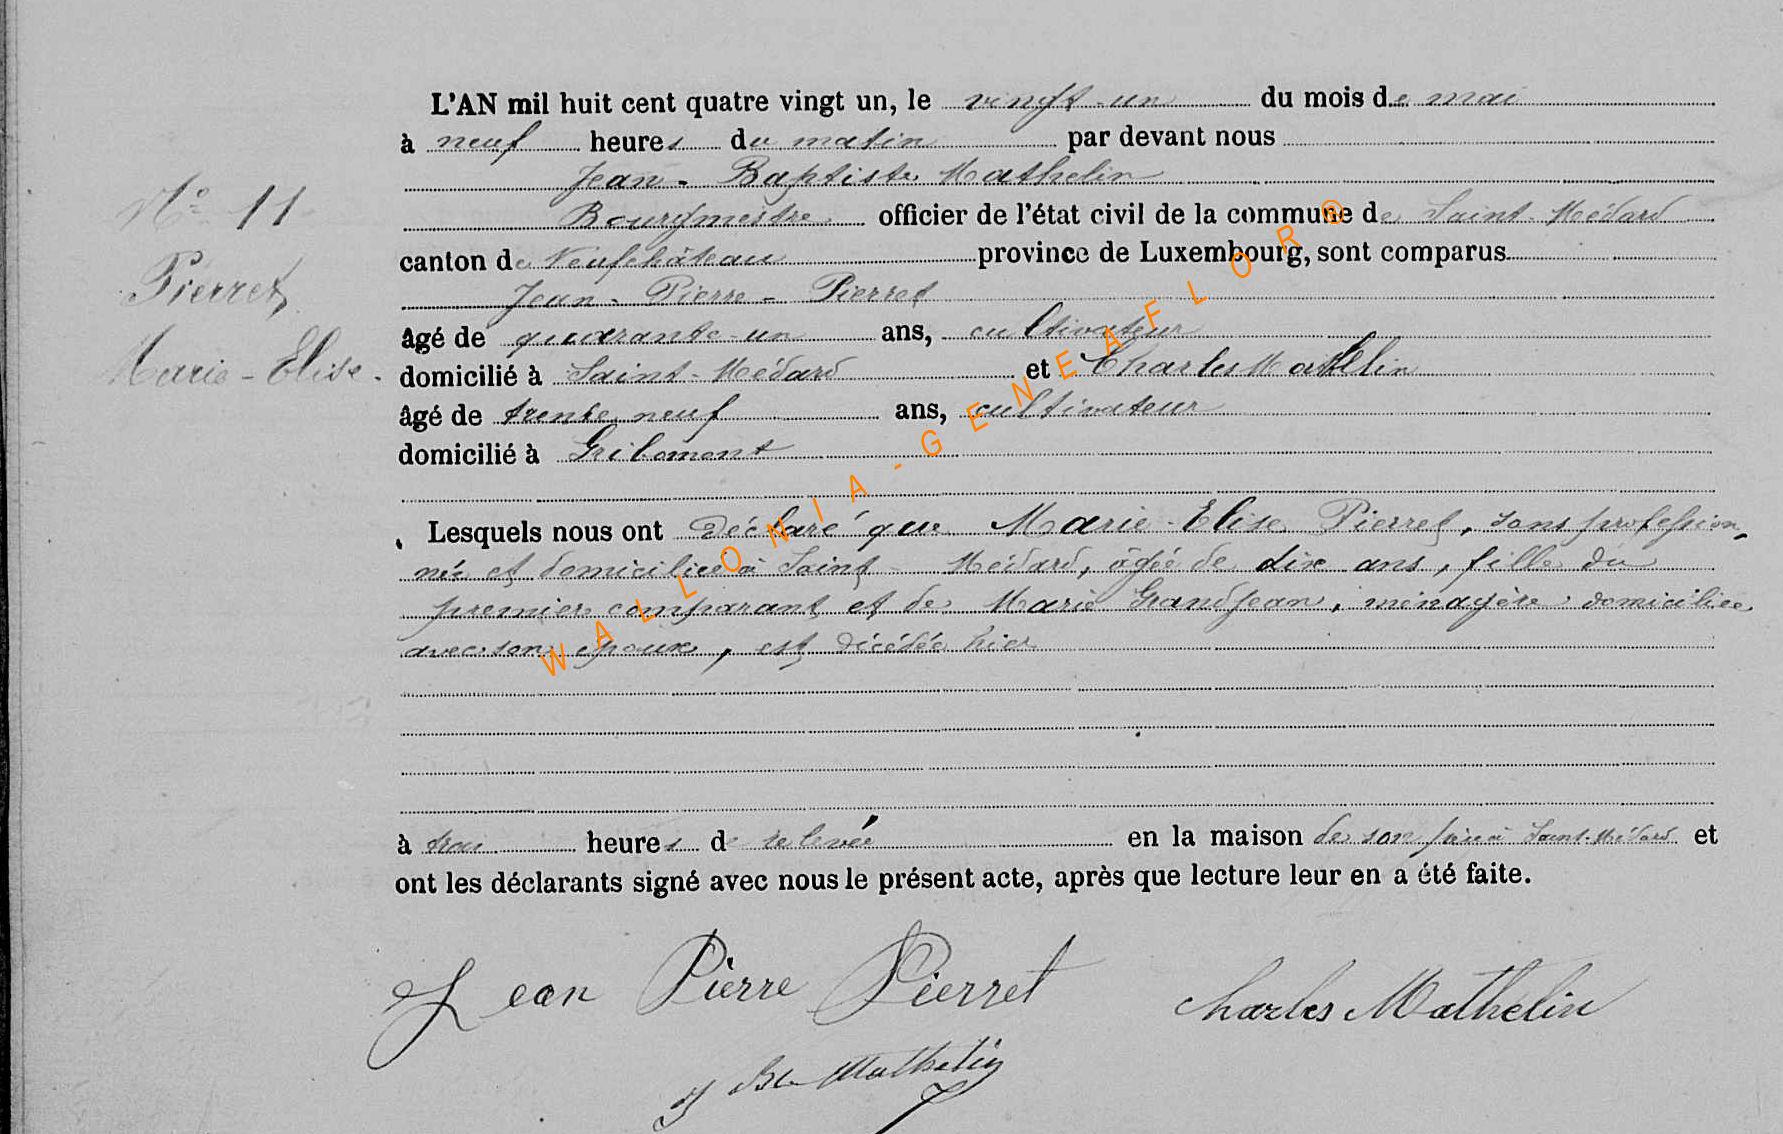 L'AN mil huit cent quatre vingt un, le vingt-un du mois de mai
à neuf heures du matin par devant nous
Jean-Baptiste Mathelin
N° 11
Bourgmestre officier de l'état civil de la commune de Saint-Médard
canton de Neufchâteau province de Luxembourg, sont comparus
Pierret
Jean-Pierre-Pierret
âgé de quarante-un ans, cultivateur
Marie-Elise.
domicilié à Saint-Médard et Charles Mathelin
âgé de trente neuf ans, cultivateur
domicilié à Gribomont
Lesquels nous ont déclaré que Marie-Elise Pierret, sans profession,
née et domiciliée à Saint-Médard, âgée de dix ans, fille du
premier comparant et de Marie Grandjean, ménagère domiciliée
avec son époux, est décédée hier
à trois heures de relevée en la maison de son père à Saint-Médard et
ont les déclarants signé avec nous le présent acte, après que lecture leur en a été faite.
Jean Pierre Pierret
Charles Mathelin
J Bte Mathelin
WALLONIA-GENEAFLOR®